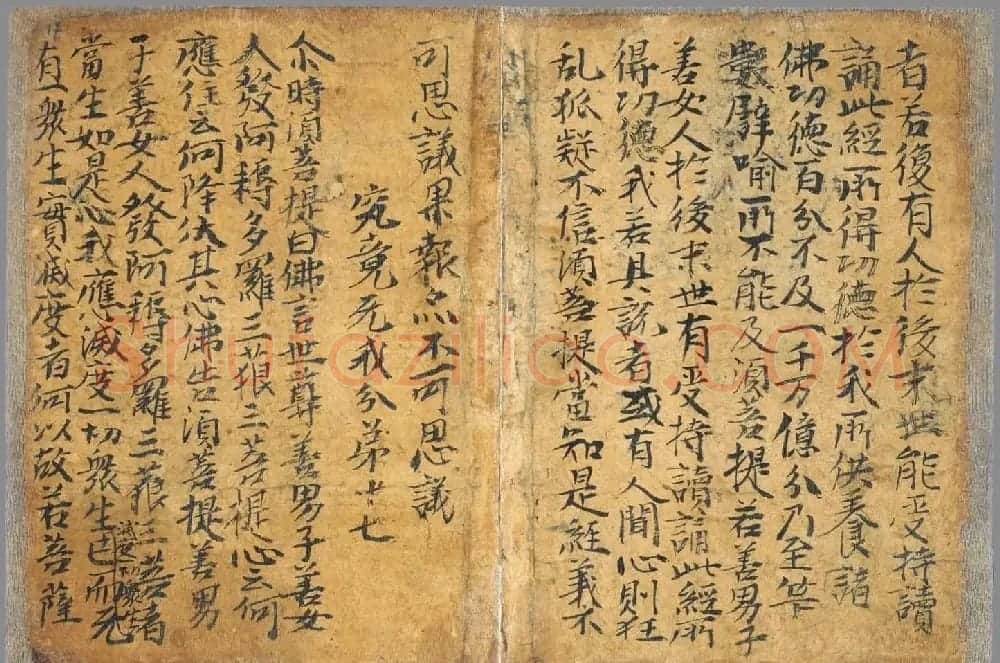 者若復有人於後末世能受持讀
誦此經所得功德於我所供養諸
佛功德百分不及一千万億分乃至筭
數譬喻所不能及須菩提若善男子
善女人於後末世有受持讀誦此經所
得功德我若具說者或有人聞心則狂
乱狐疑不信須菩提當知是經義不
可思議果報亦不可思議
究竟无我分弟十七
尒時須菩提白佛言世尊善男子善女
人發阿耨多羅三藐三菩提心云何
應住云何降伏其心佛告須菩提善男
子善女人發阿耨多羅三藐三菩者
當生如是心我應滅度一切衆生已而无
滅度一切衆生
有一衆生實滅度者何以故若菩薩
shu.azilico.com